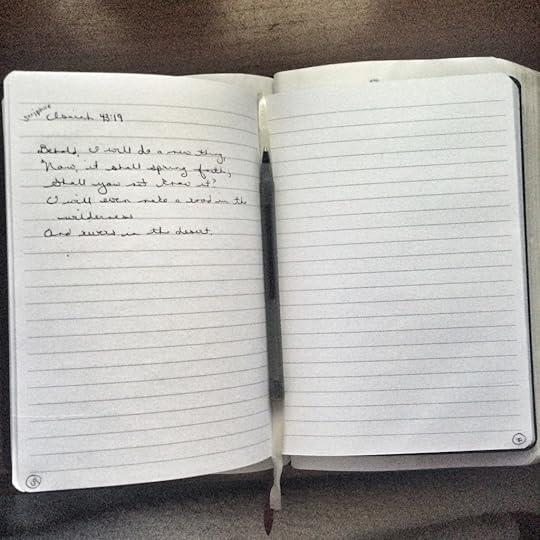 scripture
Isaiah 43:19
Behold, I will do a new thing,
Now, it shall spring forth;
Shall you not know it?
I will even make a road in the
wilderness
And rivers in the desert.